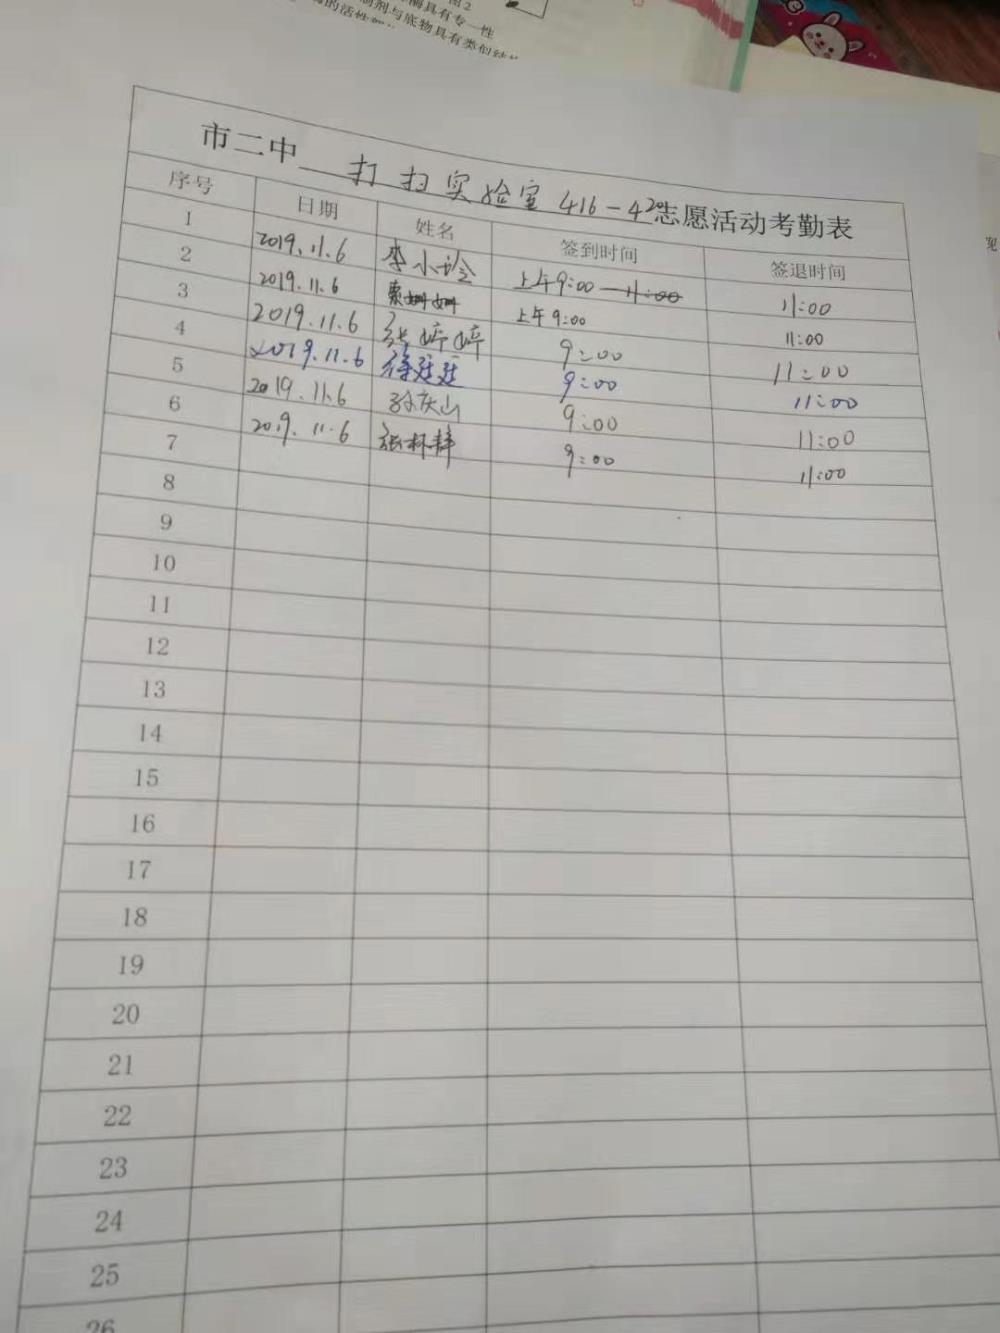 图2
酶具有专一性
制剂与底物具有类似结
的活性
市二中 打扫实验室 416-420 志愿活动考勤表
序号 日期 姓名 签到时间 签退时间
1 2019.11.6 李小玲 上午9:00-11:00 11:00
2 2019.11.6 姗姗 上午9:00 11:00
3 2019.11.6 张婷婷 9:00 11:00
4 2019.11.6 徐廷廷 9:00 11:00
5 2019.11.6 孙庆山 9:00 11:00
6 2019.11.6 张林梓 9:00 11:00
7
8
9
10
11
12
13
14
15
16
17
18
19
20
21
22
23
24
25
26